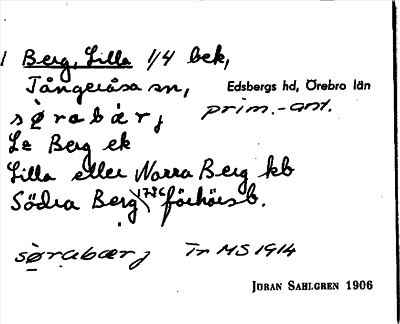 1 Berg, Lilla 1/4 bek,
Tångeråsa sn, Edsbergs hd, Örebro län
prim.-ant.
sø̱rabærj
L:a Berg ek
Lilla eller Norra Berg kb
Södra Berg 1736 förhörsb.
sø̱rabærj Tr MS 1914
JÖRAN SAHLGREN 1906